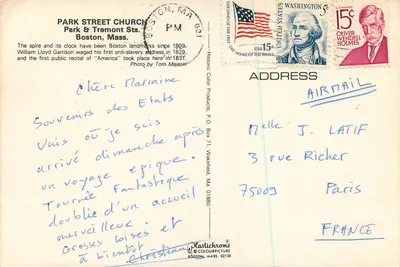 PARK STREET CHURCH
Park & Tremont Sts.
Boston, Mass.
The spire and its clock have been Boston landmarks since 1809.
William Lloyd Garrison waged his first anti-slavery address in 1829,
and the first public recital of "America" took place here in 1831.
Photo by Tom Majeski
Chère Marraine
Souvenirs des Etats
Unis où je suis
arrivé dimanche après
un voyage épique.
Tournée fantastique
doublée d'un accueil
merveilleux.
Grosses bises et
à bientôt. Christiane
BOSTON, MA 021
PM
Historic Color Products, P.O. Box 7, Wakefield, Ma. 01880
Plastichrome
COLOURPICTURE
BOSTON, MASS. 02130
USA 15c
Washington 5c
U.S. POSTAGE
15¢
OLIVER
WENDELL
HOLMES
ADDRESS
AIRMAIL
Melle J. LATIF
3 rue Richer
75009 Paris
FRANCE